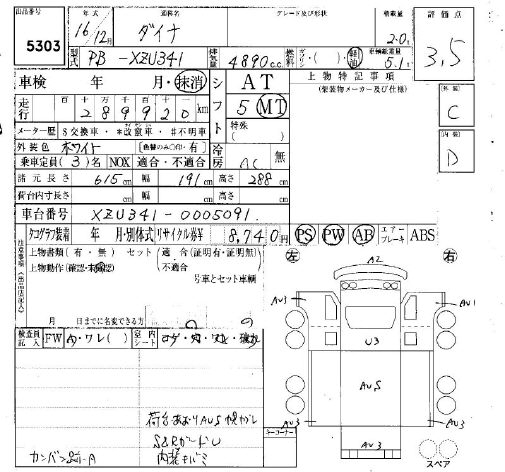 出品番号 年式 通称名 グレード及び形状 積載量 評価点
5303 16/12月 ダイナ 2.0t 3,5
型式 PB-XZU341 排気量 4890c.c. 燃料 ガソリン・( )・軽油 車輌総重量 5.1t
車検 年 月・抹消 シフト AT 上物特記事項
(架装物メーカー及び仕様)
走行 百 十 万 千 百 十 289920km 5 MT [外装] C
メーター歴 S交換車・*改竄車・#不明車 特殊( )
外装色 ホワイト [色替のみ○印・有] 冷房 AC 無 [内装] D
乗車定員(3)名 NOX 適合・不適合
諸元長さ 615cm 幅 191cm 高さ 288cm
荷台内寸長さ cm 幅 cm 高さ cm
車台番号 XZU341-0005091.
タコグラフ装着 年 月・別体式 リサイクル券 ¥ 8,740円 PS PW AB エアーブレーキ ABS
注意事項(出品店記入) 上物書類(有・無) セット(適合(証明有・証明無)・不適合) 左 右
上物動作(確認・未確認) 号車とセット車輌
A2
AU1 AU1
月 日までに名変できる方
U3
検査員記入 FW A・ワレ( ) 室内シート コゲ・穴・ワレ・破れ
AU5
荷台・あおりAU5
AU3 AU3
コーナー
S&RガードU AU3
カンバン 内装キバミ スペア